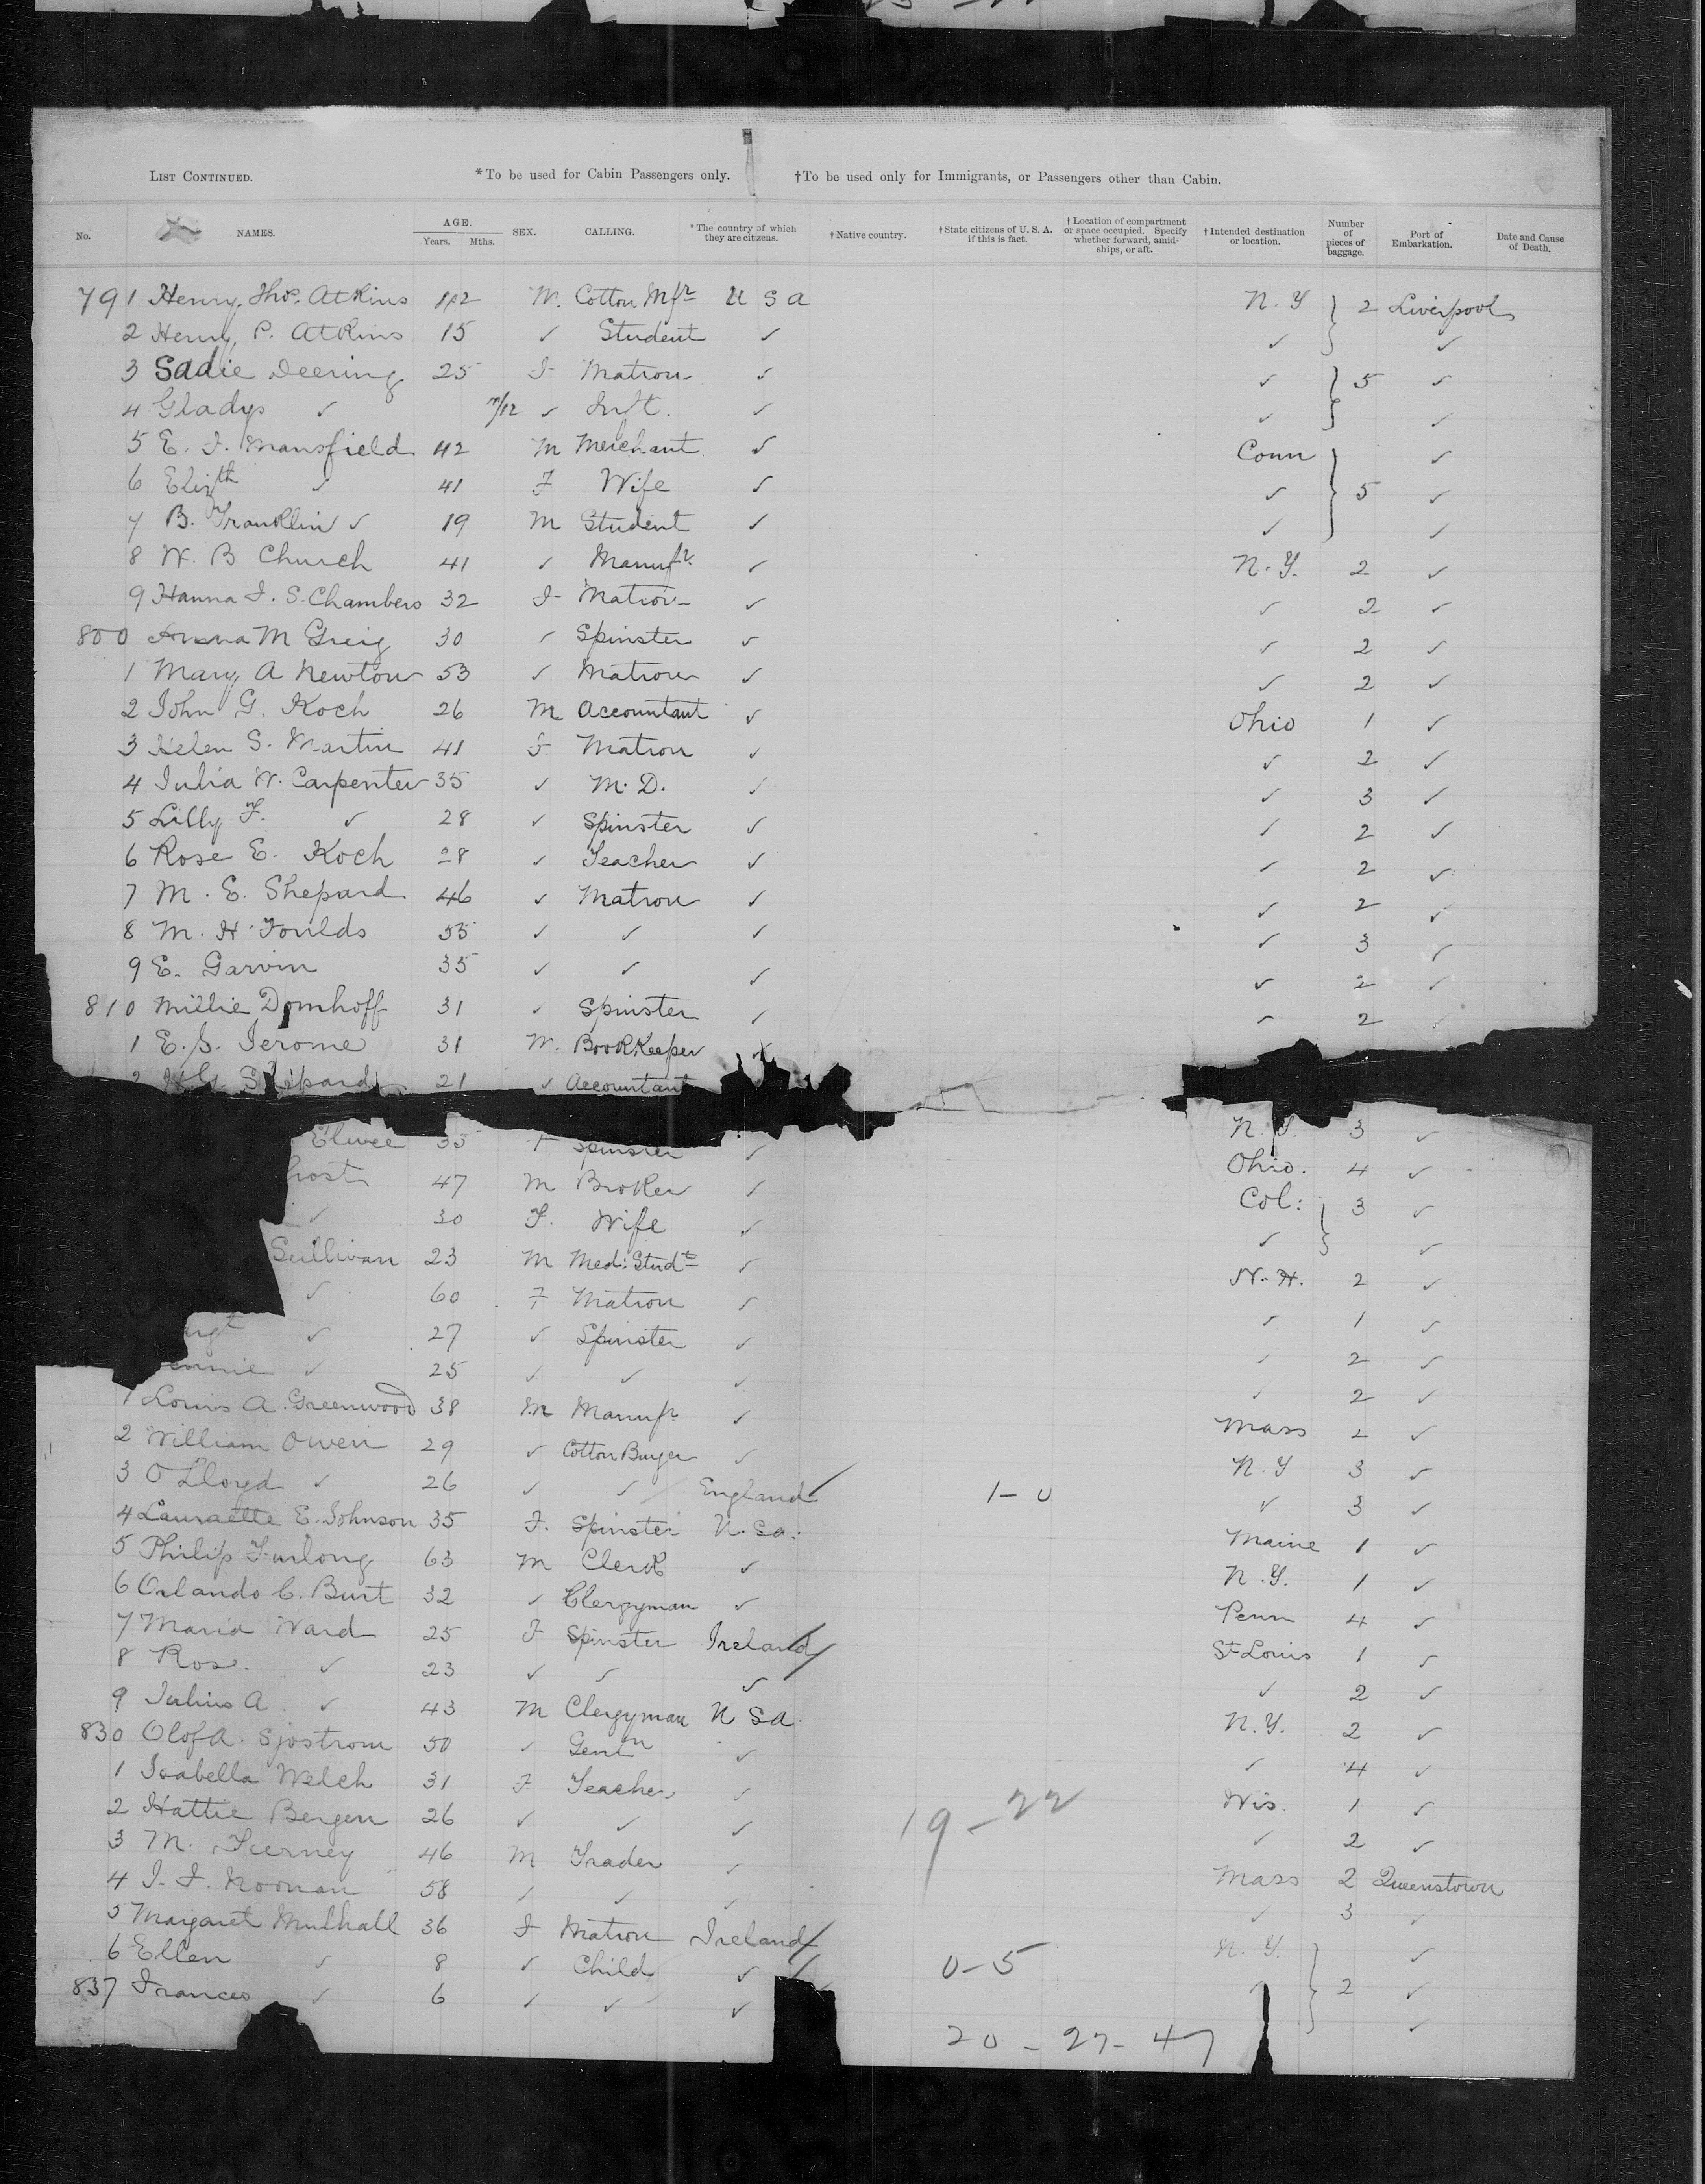 LIST CONTINUED. *To be used for Cabin Passengers only. †To be used only for Immigrants, or Passengers other than Cabin.
No. NAMES. AGE. Years. Mths. SEX. CALLING. *The country of which they are citizens. †Native country. †State citizens of U. S. A. if this is fact. †Location of compartment or space occupied. Specify whether forward, amidships, or aft. †Intended destination or location. Number of pieces of baggage. Port of Embarkation. Date and Cause of Death.
791 Henry Thos. Atkins 42 M. Cotton Mfr U S A N. Y 2 Liverpool
2 Henry P. Atkins 15 ✓ Student ✓ ✓ ✓
3 Sadie Deering 25 F Matron ✓ ✓ 5 ✓
4 Gladys ✓ /12 ✓ Inft. ✓ ✓ ✓
5 E. F. Mansfield 42 M Merchant ✓ Conn ✓
6 Elizth ✓ 41 F Wife ✓ ✓ 5 ✓
7 B. Franklin ✓ 19 M Student ✓ ✓ ✓
8 W. B Church 41 ✓ Manufr ✓ N. Y. 2 ✓
9 Hanna F. S. Chambers 32 F Matron ✓ ✓ 2 ✓
800 Anna M Greig 30 ✓ Spinster ✓ ✓ 2 ✓
1 Mary A Newton 53 ✓ Matron ✓ ✓ 2 ✓
2 John G. Koch 26 M Accountant ✓ Ohio 1 ✓
3 Helen S. Martin 41 F Matron ✓ ✓ 2 ✓
4 Julia W. Carpenter 35 ✓ M. D. ✓ ✓ 3 ✓
5 Lilly F. ✓ 28 ✓ Spinster ✓ ✓ 2 ✓
6 Rose E. Koch 28 ✓ Teacher ✓ ✓ 2 ✓
7 M. E. Shepard 46 ✓ Matron ✓ ✓ 2 ✓
8 M. H. Foulds 55 ✓ ✓ ✓ ✓ 3 ✓
9 E. Garvin 35 ✓ ✓ ✓ ✓ 2 ✓
810 Millie Domhoff 31 ✓ Spinster ✓ ✓ 2 ✓
1 E. S. Jerome 31 M. BookKeeper ✓
2 Shepard 21 ✓ Accountant
Elwee 35 F Spinster ✓ N. Y. 3 ✓
47 M Broker ✓ Ohio. 4 ✓
✓ 30 F. Wife ✓ Col: 3 ✓
Sullivan 23 M Med: Studt ✓ ✓ ✓
✓ 60 F Matron ✓ N. H. 2 ✓
✓ 27 ✓ Spinster ✓ ✓ 1 ✓
ennie ✓ 25 ✓ ✓ ✓ ✓ 2 ✓
1 Louis A. Greenwood 38 M Manufr ✓ ✓ 2 ✓
2 William Owen 29 ✓ Cotton Buyer ✓ Mass 2 ✓
3 O Lloyd ✓ 26 ✓ ✓ England 1-0 N. Y 3 ✓
4 Lauraette E. Johnson 35 F. Spinster U. S a. ✓ 3 ✓
5 Philip Furlong 63 M Clerk ✓ Maine 1 ✓
6 Orlando C. Burt 32 ✓ Clergyman ✓ N. Y. 1 ✓
7 Maria Ward 25 F Spinster Ireland Penn 4 ✓
8 Rose ✓ 23 ✓ ✓ ✓ St Louis 1 ✓
9 Julius A. ✓ 43 M Clergyman U S a. ✓ 2 ✓
830 Olof A. Sjostrom 50 ✓ Gentn ✓ N. Y. 2 ✓
1 Isabella Welch 31 F Teacher ✓ ✓ 4 ✓
2 Hattie Bergen 26 ✓ ✓ ✓ 19-22 Wis. 1 ✓
3 M. Tierney 46 M Trader ✓ ✓ 2 ✓
4 J. F. Noonan 58 ✓ ✓ ✓ Mass 2 Queenstown
5 Margaret Mulhall 36 F Matron Ireland ✓ 3 ✓
6 Ellen ✓ 8 ✓ Child ✓ 0-5 N. Y. ✓
837 Frances ✓ 6 ✓ ✓ ✓ 2 ✓
✓
20 - 27 - 47